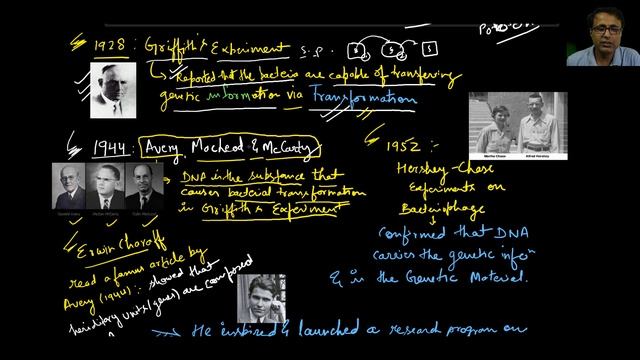 1928: Griffith's Experiment S.P. S S
Reported that the bacteia are capable of transferring
genetic information via Transformation
1944: Avery, Macleod & McCarty
DNA is the substance that
causes bacterial transformation
in Griffith's Experiment
Erwin Chargaff
read a famous article by
Avery (1944): showed that
hereditary units (genes) are composed
1952:-
Martha Chase Alfred Hershey
Hershey-Chase
Experiments on
Bacteriophage
Confirmed that DNA
carries the genetic infor
& is the Genetic Material.
He inspired & launched a research program on